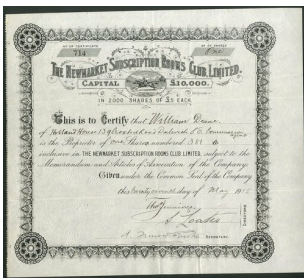 No OF CERTIFICATE
714
No OF SHARES
One
THE NEWMARKET SUBSCRIPTION ROOMS CLUB, LIMITED.
CAPITAL £10,000.
IN 2000 SHARES OF £5 EACH.
This is to Certify that William Deane
of Holland House 139 Dulwich S.E.
is the Proprietor of One Shares numbered 381 to
inclusive in THE NEWMARKET SUBSCRIPTION ROOMS CLUB LIMITED, subject to the
Memorandum and Articles of Association of the Company:
Given under the Common Seal of the Company
this twenty seventh day of May
DIRECTORS
SECRETARY.